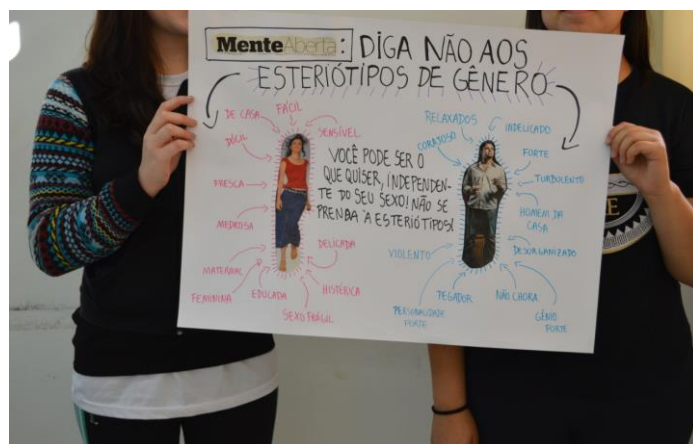 MenteAberta: DIGA NÃO AOS
ESTERIÓTIPOS DE GÊNERO
DE CASA
FÁCIL
SENSÍVEL
DÓCIL
FRESCA
MEDROSA
MATERNAL
FEMININA
EDUCADA
SEXO FRÁGIL
HISTÉRICA
DELICADA
VOCÊ PODE SER O
QUE QUISER, INDEPENDEN-
TE DO SEU SEXO! NÃO SE
PRENDA À ESTERIÓTIPOS!
RELAXADOS
INDELICADO
CORAJOSO
FORTE
TURBULENTO
HOMEM DA
CASA
DESORGANIZADO
VIOLENTO
PERSONALIDADE
FORTE
PEGADOR
NÃO CHORA
GÊNIO
FORTE